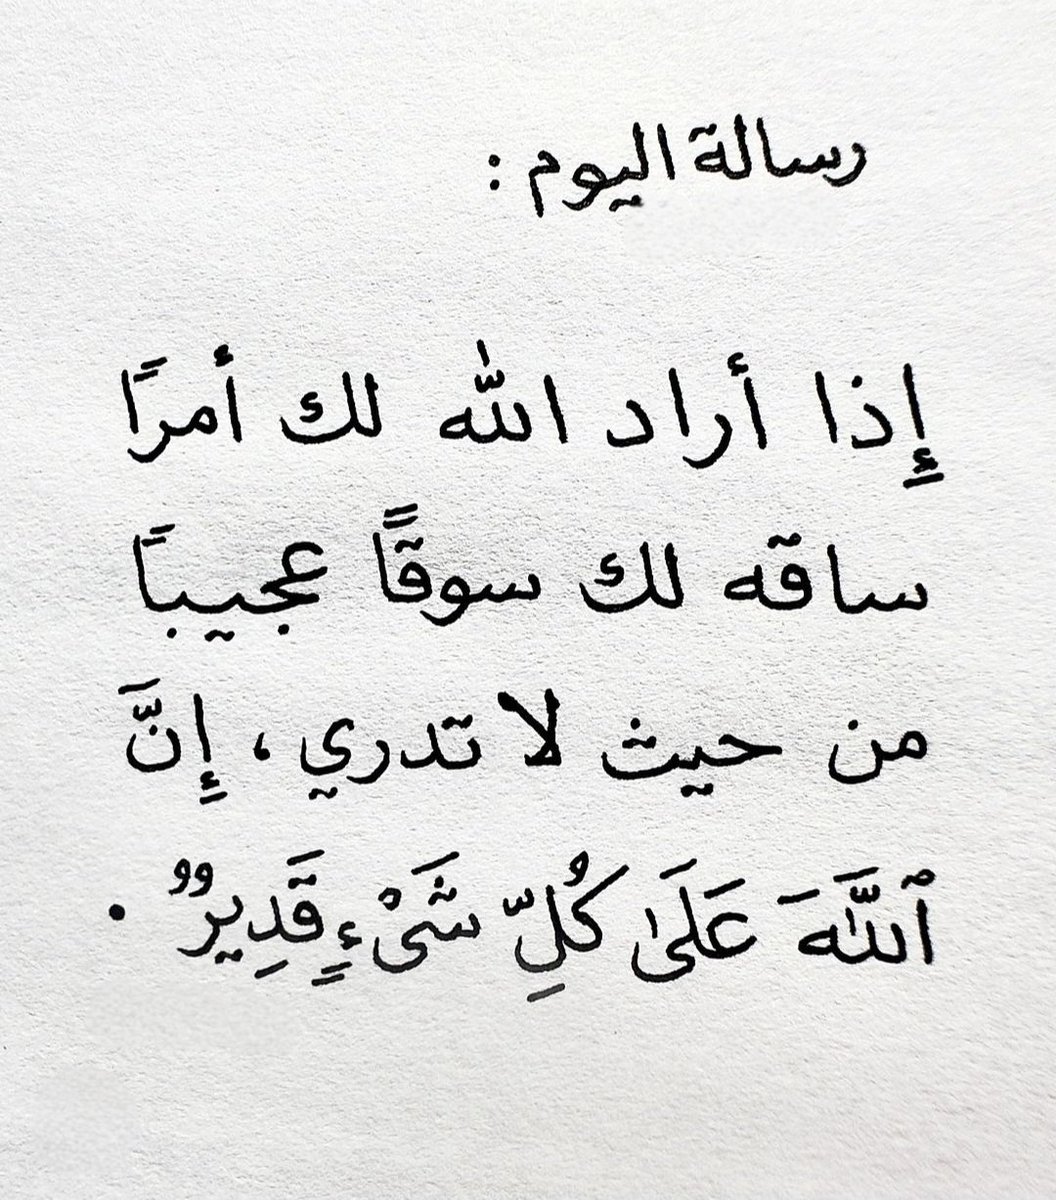 رسالة اليوم :
إِذا أراد الله لك أمرًا
ساقه لك سوقًا عجيبًا
من حيث لا تدري ، إِنَّ
ٱللَّهَ عَلَىٰ كُلِّ شَىْءٍ قَدِيرٌ .